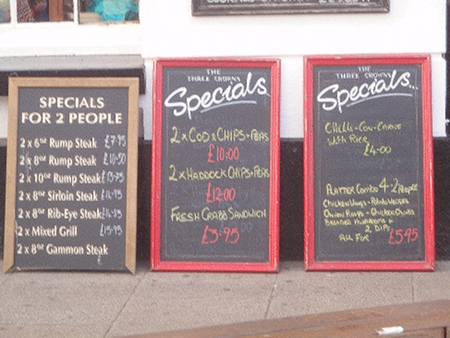 SPECIALS
FOR 2 PEOPLE
2 x 6oz Rump Steak £7.95
2 x 8oz Rump Steak £10.50
2 x 10oz Rump Steak £13.95
2 x 8oz Sirloin Steak
2 x 8oz Rib-Eye Steak
2 x Mixed Grill
2 x 8oz Gammon Steak
THE
THREE CROWNS
Specials...
2 x COD & CHIPS + PEAS
£10:00
2 x HADDOCK CHIPS + PEAS
£12:00
FRESH CRAB SANDWICH
£3.95
THE
THREE CROWNS
Specials...
CHILLI-CON-CARNE
with Rice
£4:00
PLATTER COMBO 4 2 People
Chicken Wings - Potato Wedges
Onion Rings - Chicken
Breaded mushrooms +
2 DIPS
ALL FOR £5.95